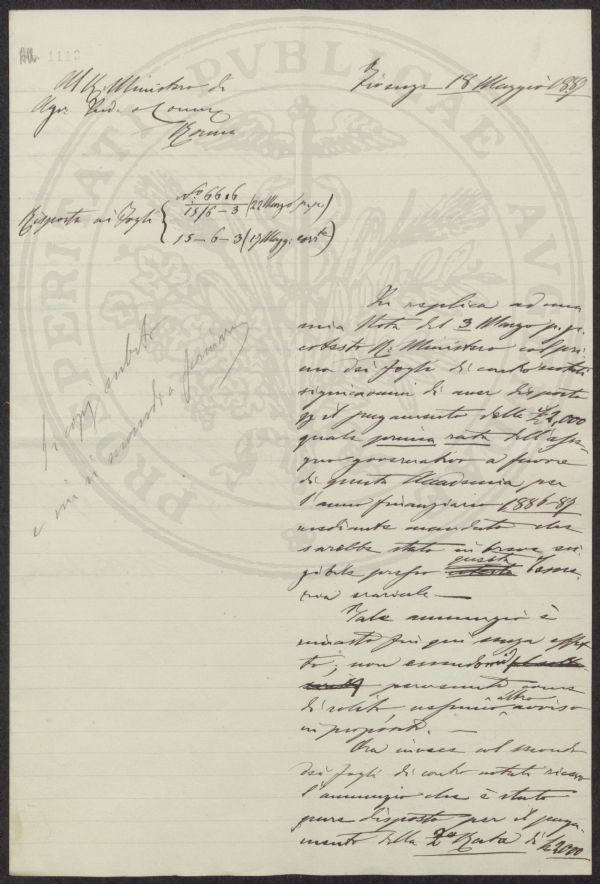 1113
Firenze 18 Maggio 1887
Al R. Ministero di
Agr. Ind. e Comm.
Roma
Risposta ai Fogli
N.° 6606
15/6 - 3 (22 Marzo p.p.)
15 - 6 - 3 (17 Magg. corr.te)
Si copj subito
e mi si rimandi a
In replica ad una
mia Nota del 3 Marzo p.p.
cotesto R. Ministero col pri
mo dei fogli di contro notati
significavami di aver disposto
il pagamento delle £ 2,000
quale prima rata dell'asse
gno governativo a favore
di questa Accademia per
l'anno finanziario 1886-87
mediante mandato che
sarebbe stato in breve esi
gibile presso questa Teso
reria
Tale annunzio è
rimasto fin qui senza effet
to, non essendomi
pervenuto come
di solito nessun altro avviso
in proposito. —
Ora invece col secondo
dei fogli di contro notati ricevo
l'annunzio che è stato
pure disposto per il paga
mento della 2a Rata di £ 2000